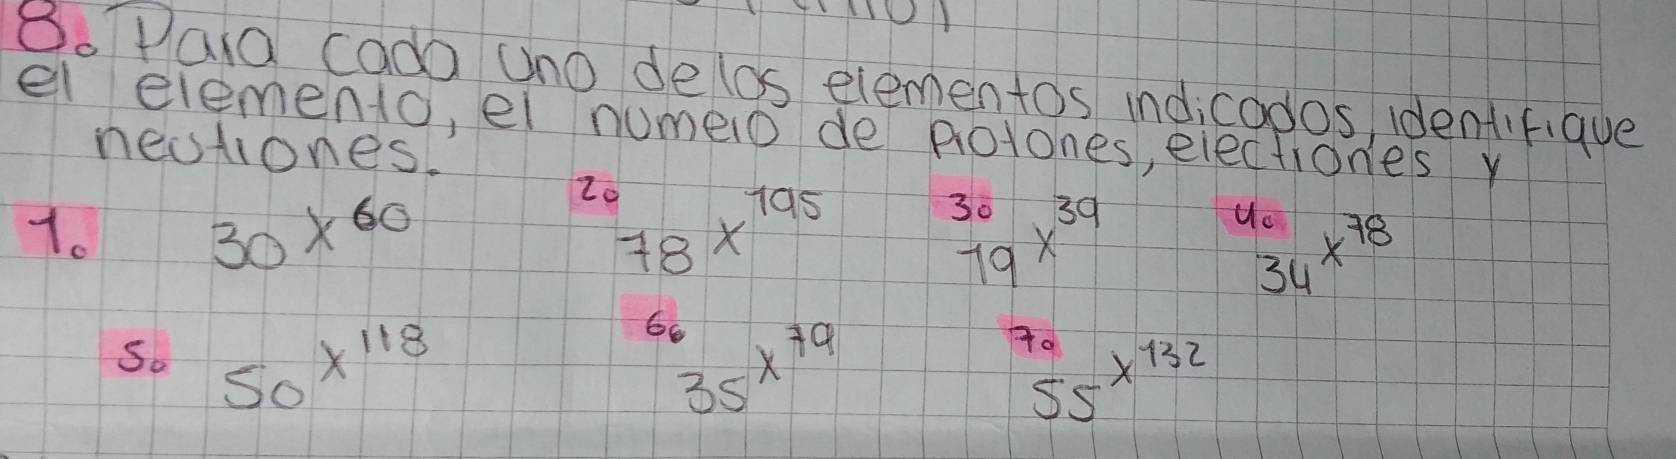 8. Para cada uno delos elementos indicados, identifique
el elemento, el numero de protones, electrones y
neutrones.
1. 30 X 60 2. 78 X 195 3. 19 X 39 4. 34 X 78
5. 50 X 118 6. 35 X 79 7. 55 X 132